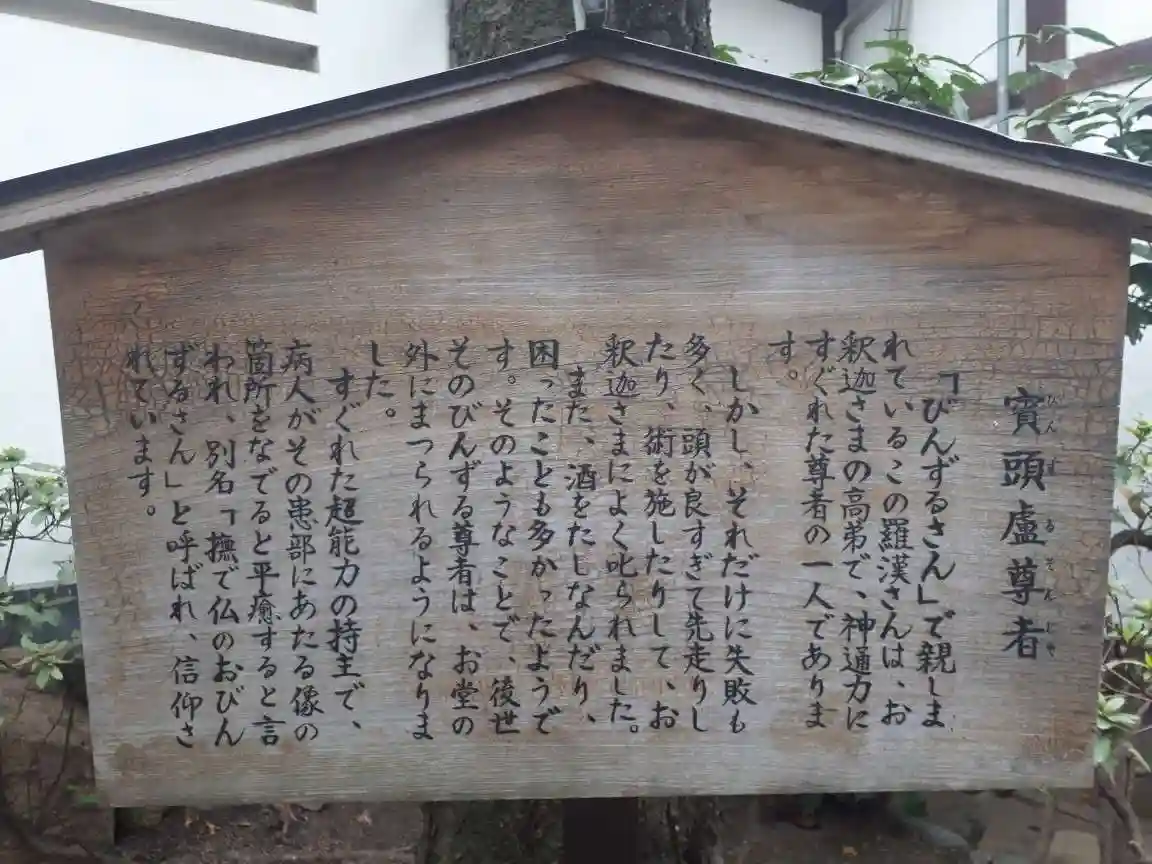 賓頭盧尊者
びんずるそんじゃ
「びんずるさん」で親しま
れているこの羅漢さんは、お
釈迦さまの高弟で、神通力に
すぐれた尊者の一人でありま
す。
しかし、それだけに失敗も
多く、頭が良すぎて先走りし
たり、術を施したりして、お
釈迦さまによく叱られました。
また、酒をたしなんだり、
困ったことも多かったようで
す。そのようなことで、後世
そのびんずる尊者は、お堂の
外にまつられるようになりま
した。
すぐれた超能力の持主で、
病人がその患部にあたる像の
箇所をなでると平癒すると言
われ、別名「撫で仏のおびん
ずるさん」と呼ばれ、信仰さ
れています。